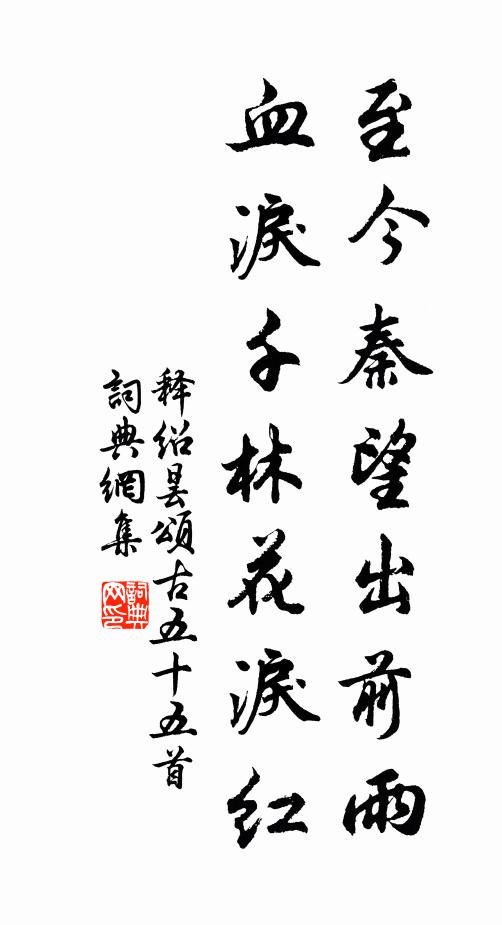 至今秦望出前雨
血淚千林花淚紅
释绍昙頌古五十五首
詞典網集
詞典网印